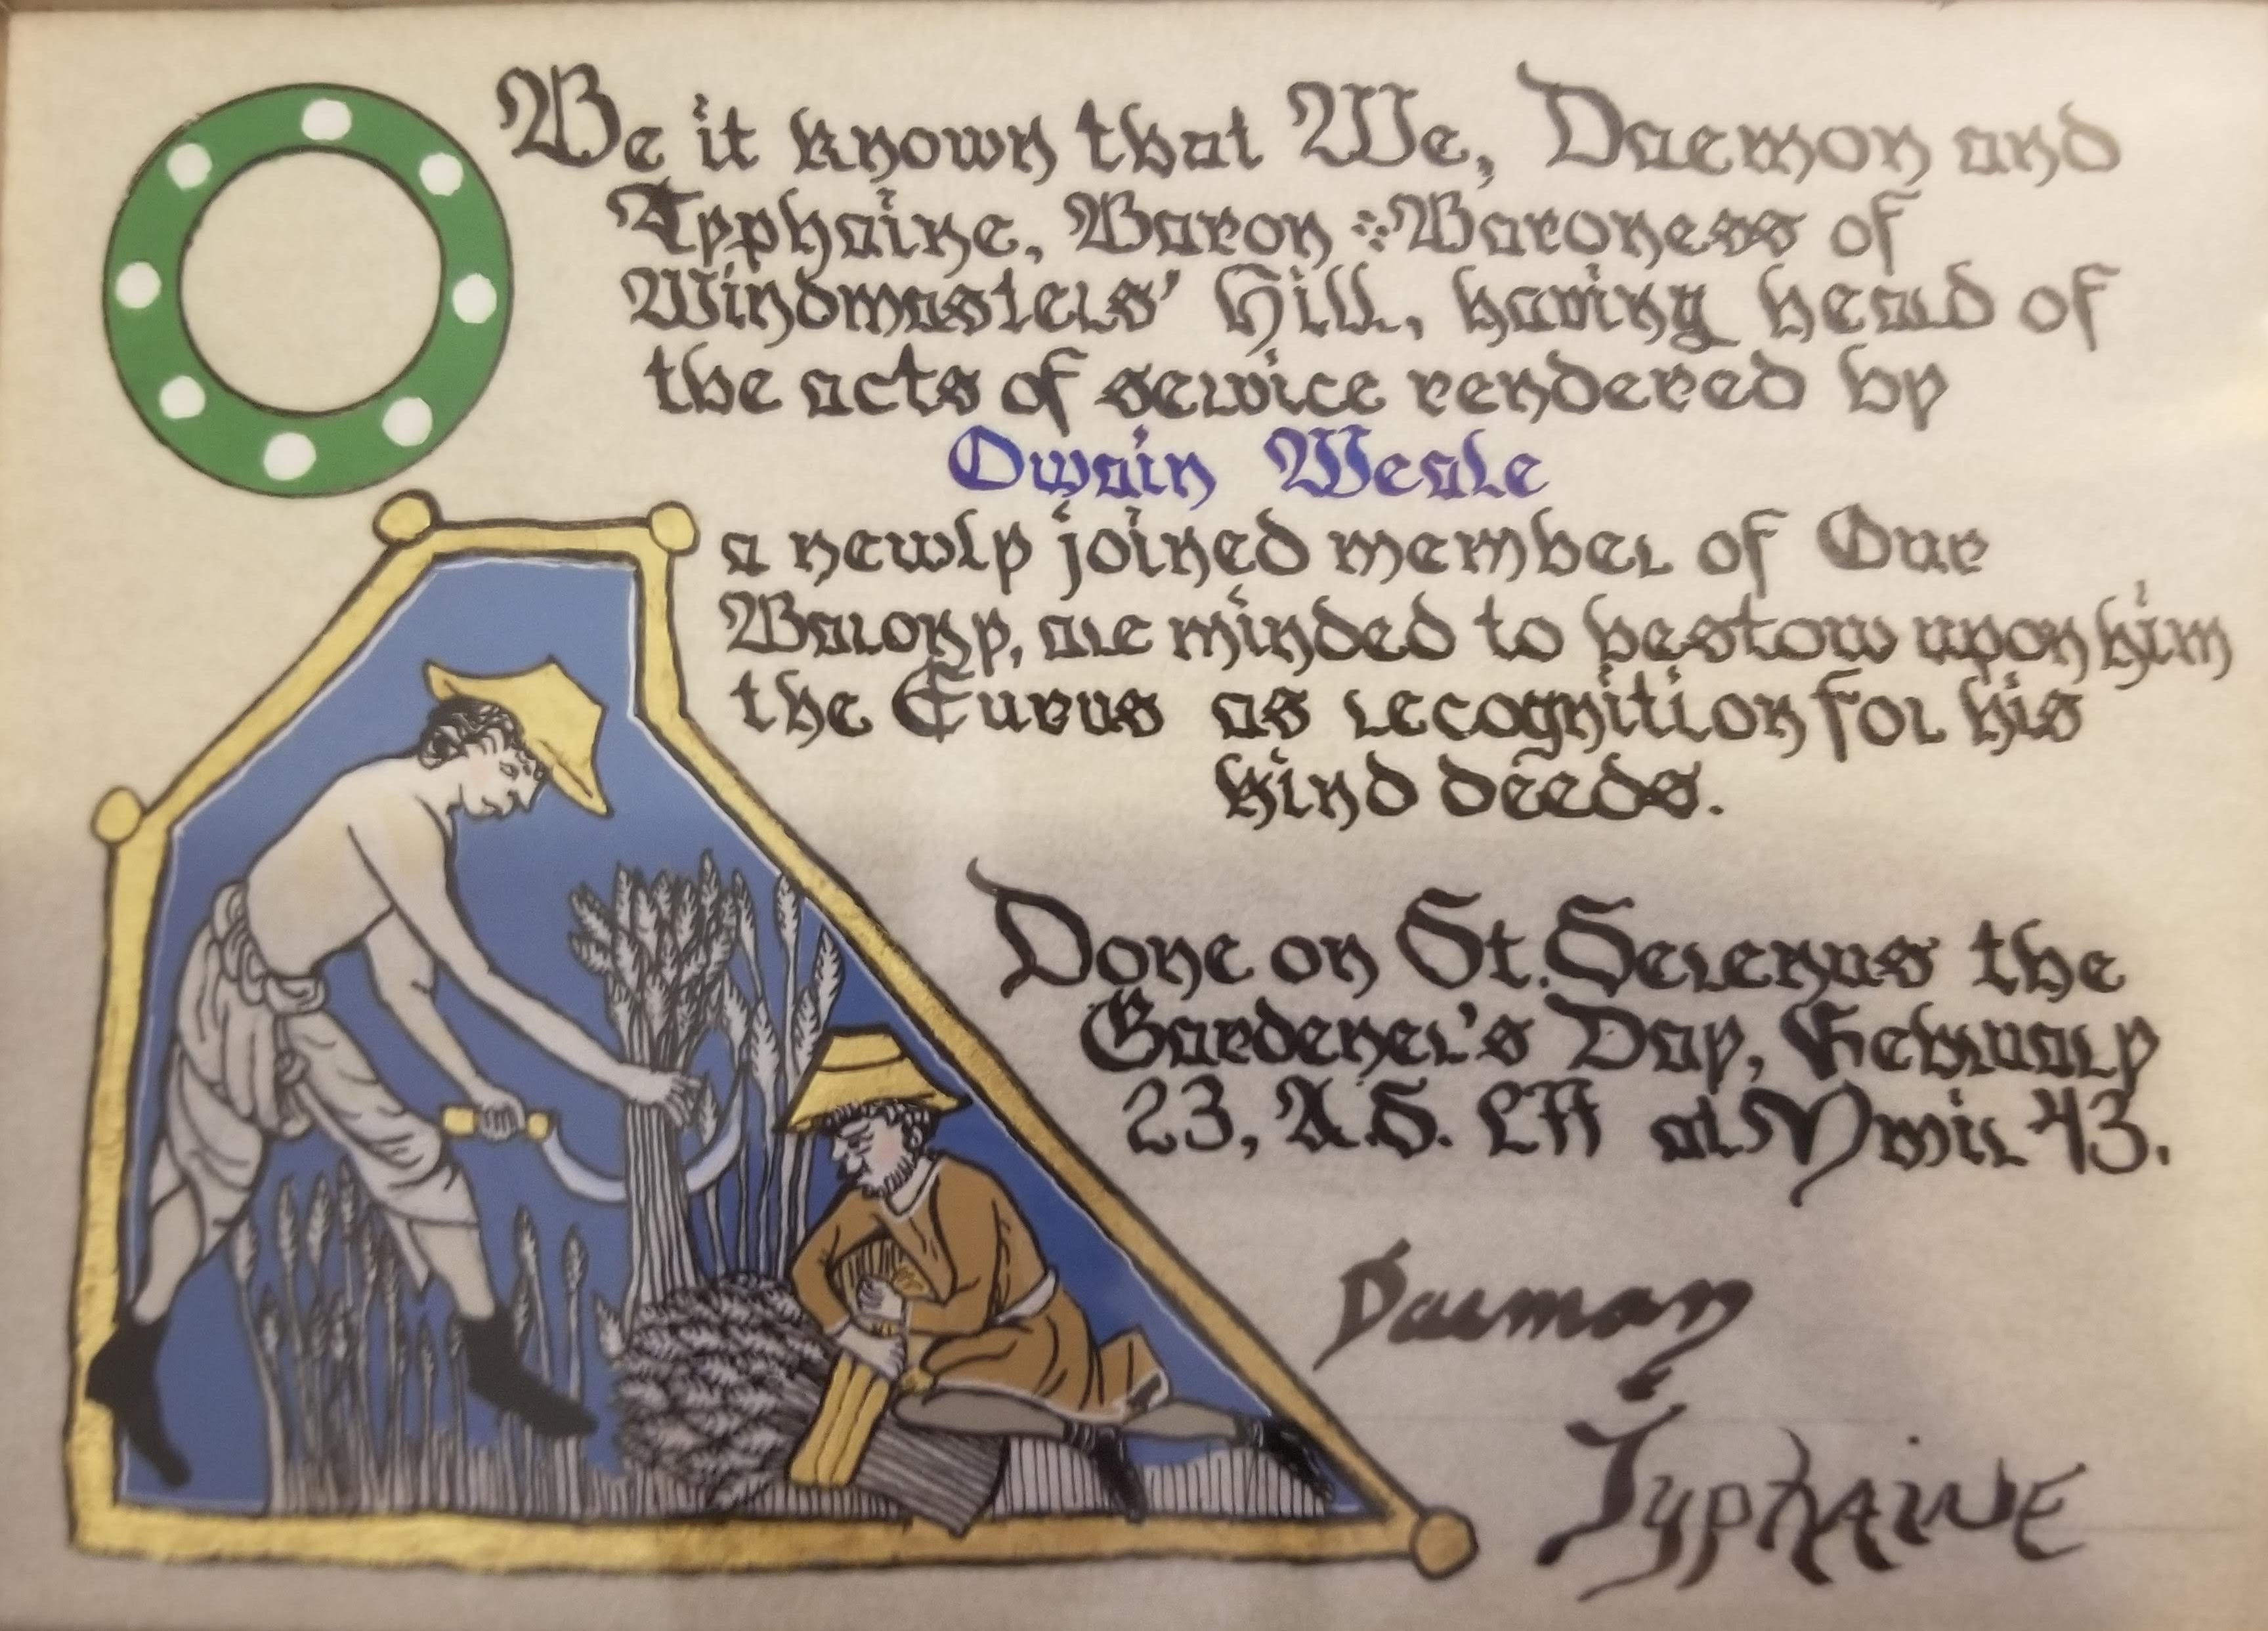 Be it known that We, Daemon and
Typhaine, Baron & Baroness of
Windmasters' Hill, having heard of
the acts of service rendered by
Owain Weale
a newly joined member of Our
Barony, are minded to bestow upon him
the Eurus as recognition for his
kind deeds.
Done on St. Serenus the
Gardener's Day, February
23, A.S. LIV at Ymir 43.
Daemon
Typhaine